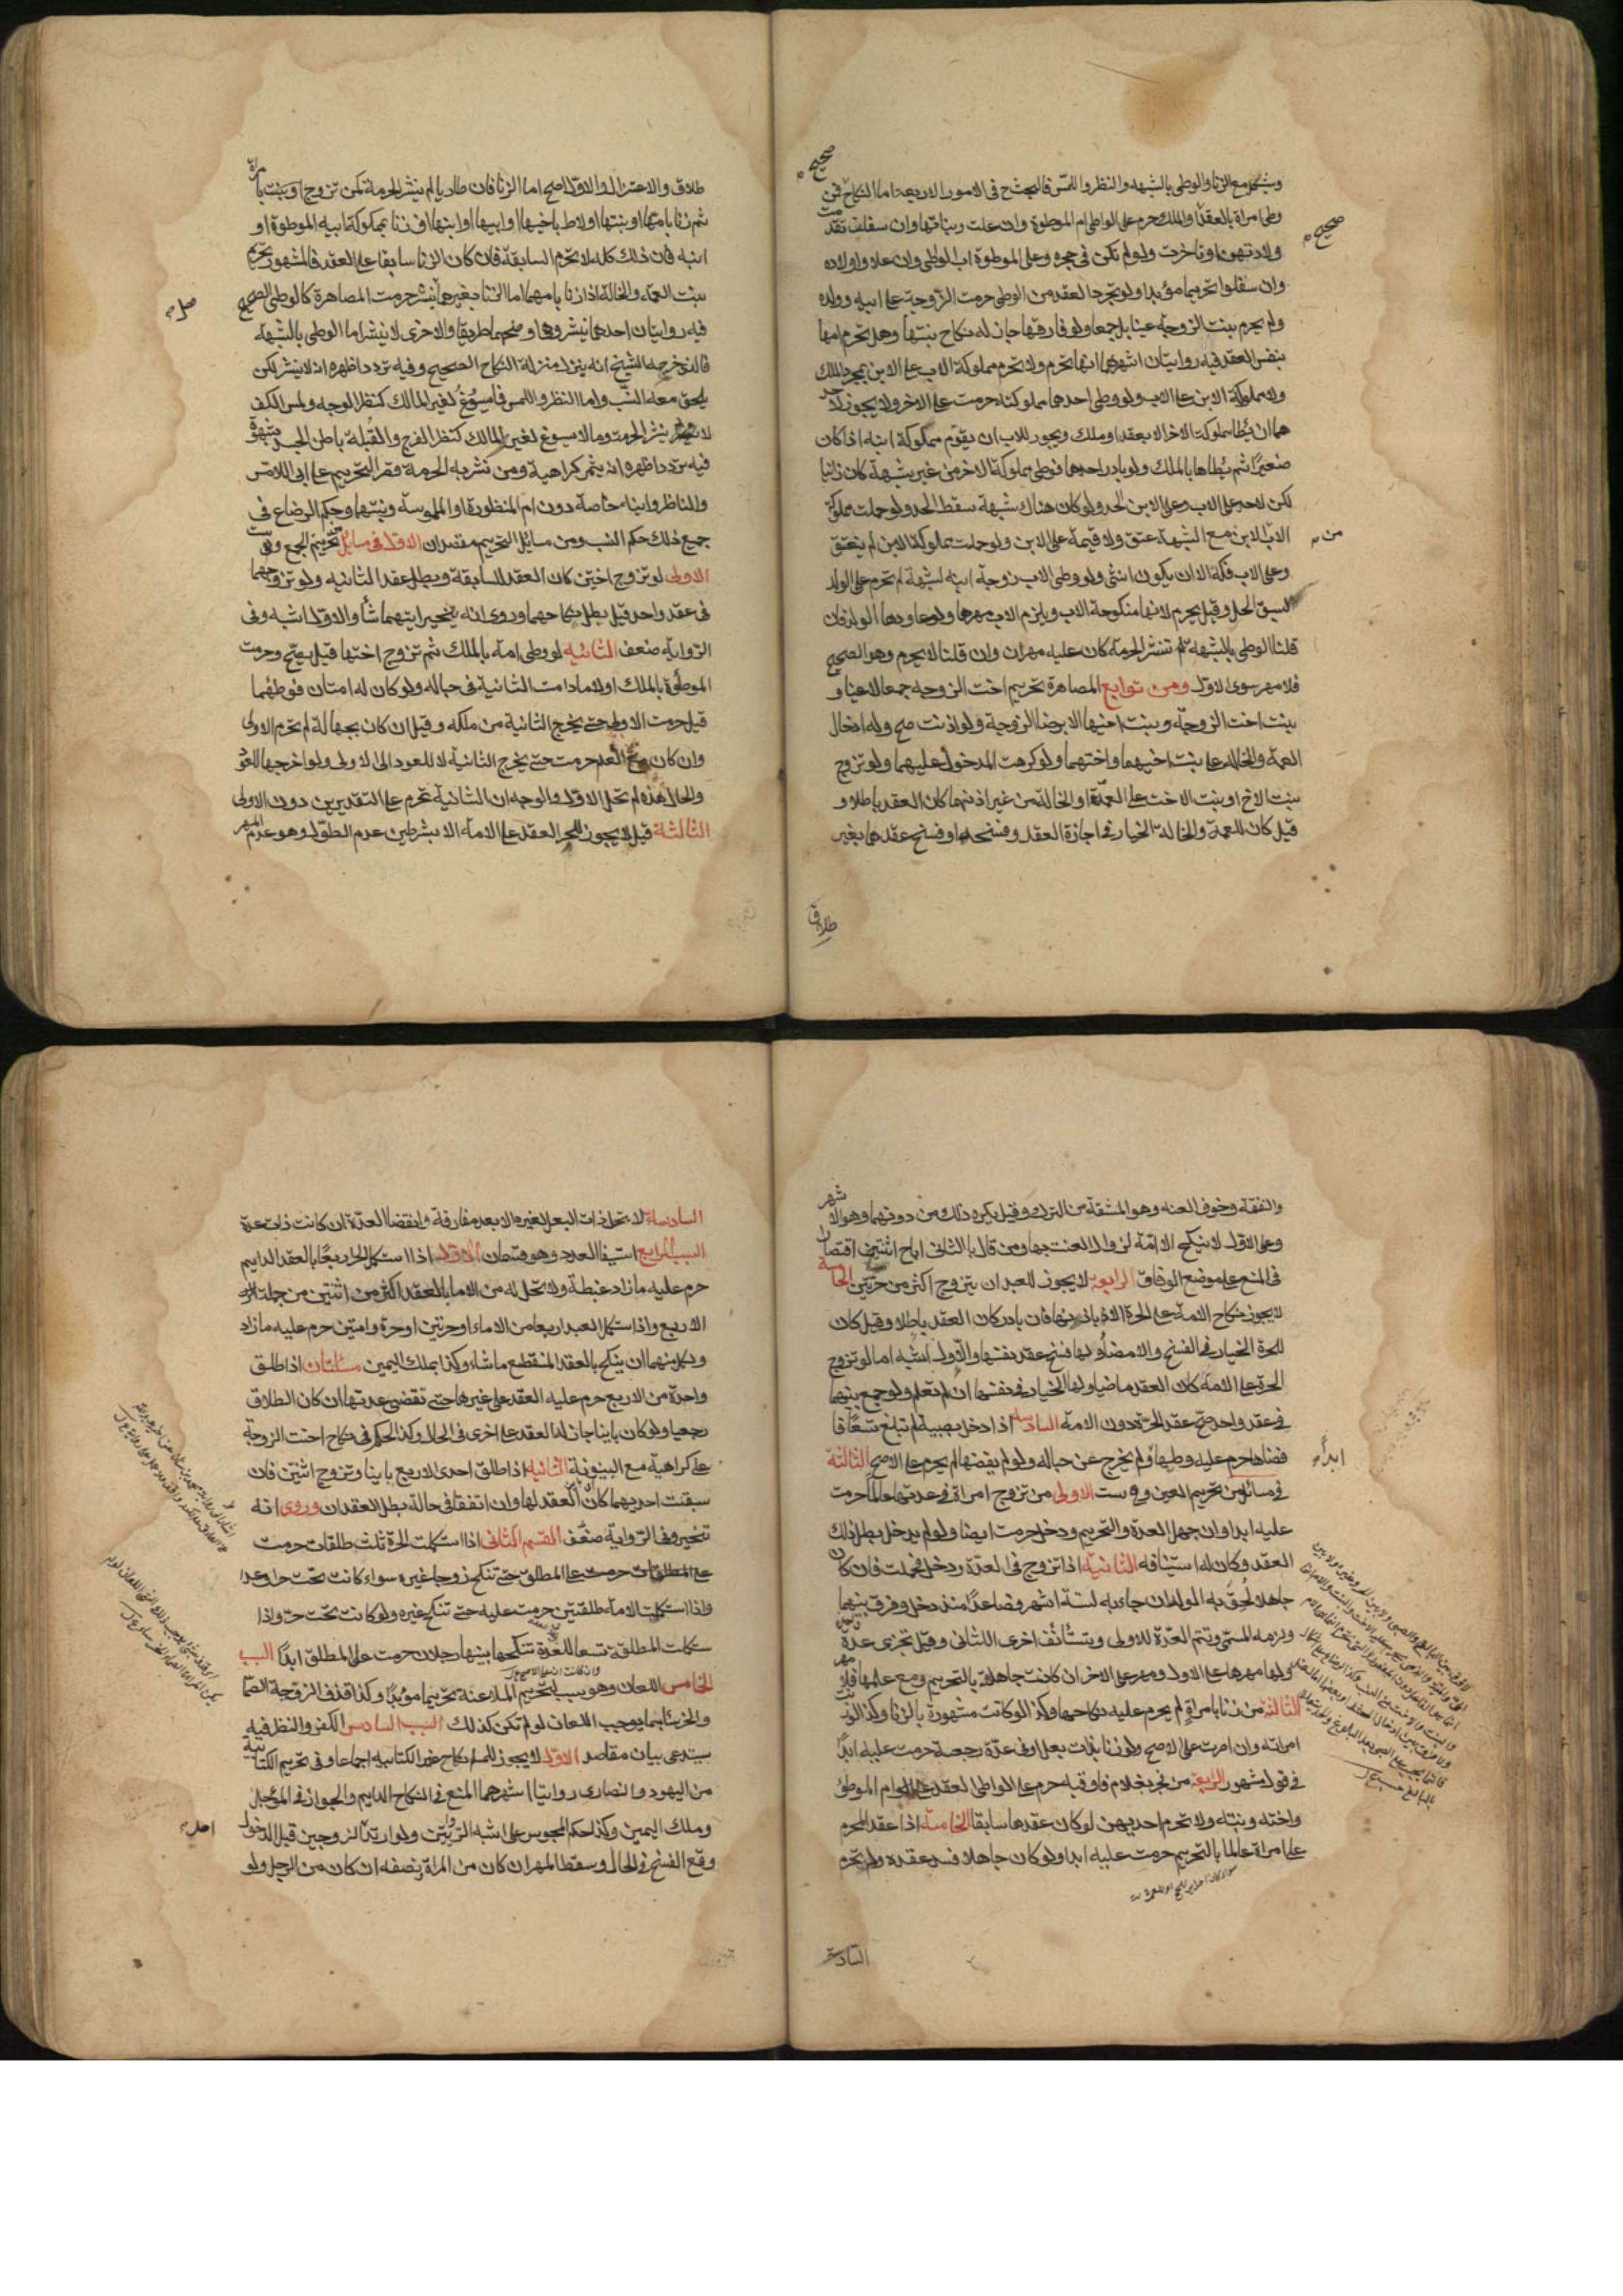 ويشكل مع الزنا والوطي بالشبهه والنظر واللمس فالبحث ح في الامور الاربعة اما النكاح فمن
وطي امراة بالعقد والملك حرم على الواطي ام الموطوة وان علت وبناتها وان سفلن تقدمت
ولادتهن او تاخرت ولو لم تكن في حجره وعلى الموطوة اب الواطي وان علا واولاده
وان سفلوا تحريما مؤبدا ولو تجرد العقد من الوطي حرمت الزوجة على ابيه وولده
ولم يحرم بنت الزوجة عينا بل جمعا ولو فارقها جاز له نكاح بنتها وهل تحرم امها
بنفس العقد فيه روايتان اشهرهما انها تحرم ولا تحرم مملوكة الاب على الابن بمجرد الملك
ولا مملوكة الابن على الاب ولو وطي احدهما مملوكته حرمت على الاخر ولا يجوز لاحد
هما ان يطا مملوكة الاخر الا بعقد او ملك ويجوز للاب ان يقوم مملوكة ابنه اذا كان
صغيرا ثم يطاها بالملك ولو بادر احدهما فوطي مملوكة الاخر من غير شبهة كان زانيا
لكن لا حد على الاب وعلى الابن الحد ولو كان هناك شبهة سقط الحد ولو حملت مملوكة
الاب للابن مع الشبهة عتق ولا قيمة على الابن ولو حملت مملوكة الابن لم ينعتق
وعلى الاب فكه الا ان يكون انثى ولو وطي الاب زوجة ابنه لشبهة لم تحرم على الولد
لسبق الحل وقيل يحرم لانها منكوحة الاب ويلزم الاب مهرها ولو عاودها الولد فان
قلنا الوطي بالشبهة تنشر الحرمة كان عليه مهران وان قلنا لا يحرم وهو الصحيح
فلا مهر سوى الاول ومن توابع المصاهرة تحريم اخت الزوجة جمعا لا عينا و
بنت اخت الزوجة وبنت اخيها الا برضا الزوجة ولو اذنت صح وله ادخال
العمة والخالة على بنت اخيهما واختهما ولو كرهت المدخول عليهما ولو تزوج
بنت الاخ او بنت الاخت على العمة او الخالة من غير اذنهما كان العقد باطلا و
قيل كان للعمة والخالة الخيار في اجازة العقد وفسخه او فسخ عقدهما بغير
صحيح
صحيح
من
طلاق
طلاق والاعتزال والاول اصح اما الزنا فان طاريا لم ينشر الحرمة كمن تزوج بامراة
ثم زنا بامها او بنتها او لاط باخيها او ابيها او ابنها او زنا بمملوكة ابيه الموطوة او
ابنه فان ذلك كله لا يحرم السابقة فان كان الزنا سابقا على العقد فالمشهور تحريم
بنت العمة والخالة اذا زنا بامهما اما الزنا بغيرهما ينشر حرمت المصاهرة كالوطي الصحيح
فيه روايتان احدهما ينشر وهي اوضحهما طريقا والاخرى لا ينشر اما الوطي بالشبهة
فالذي خرجه الشيخ انه ينزل منزلة النكاح الصحيح وفيه تردد اظهره انه لا ينشر لكن
يلحق معه النسب واما النظر واللمس فما يسوغ لغير المالك كنظر الوجه ولمس الكف
لا ينشر الحرمت وما لا يسوغ لغير المالك كنظر الفرج والقبلة باطن الجسد بشهوة
فيه تردد اظهره انه يثمر كراهية ومن نشر به الحرمة قصر التحريم على اب اللامس
والناظر وابنه خاصة دون ام المنظورة او الملموسة وبنتهما وحكم الرضاع في
جميع ذلك حكم النسب ومن مسائل التحريم مقصدان الاول في مسايل تحريم الجمع وهي ست
الاولى لو تزوج اختين كان العقد للسابقة وبطل عقد الثانيه ولو تزوجهما
في عقد واحد قيل بطل نكاحهما وروي انه يتخير ايتهما شا والاول اشبه وفي
الرواية ضعف الثانيه لو وطي امة بالملك ثم تزوج اختها قيل يصح وحرمت
الموطوة بالملك اولا ما دامت الثانية في حباله ولو كان له امتان فوطئهما
قيل حرمت الاولى حتى يخرج الثانية من ملكه وقيل ان كان بجهالة لم تحرم الاولى
وان كان مع العلم حرمت حتى يخرج الثانية لا للعود الى الاولى ولو اخرجها للعود
والحال هذه لم تحل الاولى والوجه ان الثانية تحرم على التقديرين دون الاولى
الثالثة قيل لا يجوز للحر العقد على الامة الا بشرطين عدم الطول وهو عدم المهر
والنفقة وخوف العنت وهو المشقة من الترك وقيل يكره ذلك من دونهما وهو الاشهر
وعلى الاول لا ينكح الا امة لزوال العنت بها ومن قال بالثاني اباح اثنتين اقتصارا
في المنع على موضع الوفاق الرابعة لا يجوز للعبد ان يتزوج اكثر من حرتين الخامسة
لا يجوز نكاح الامة على الحرة الا باذنها فان بادر كان العقد باطلا وقيل كان
للحرة الخيار في الفسخ والامضاء ولها فسخ عقد نفسها والاول اشبه اما لو تزوج
الحرة على الامة كان العقد ماضيا ولها الخيار في نفسها ان لم تعلم ولو جمع بينهما
في عقد واحد صح عقد الحرة دون الامة السادسة اذا دخل بصبية لم تبلغ تسعا فا
فضاها حرم عليه وطيها ولم يخرج عن حباله ولو لم يفضها لم يحرم على الاصح
في مسائل من تحريم العين وهي ست الاولى من تزوج امراة في عدتها عالما حرمت
عليه ابدا وان جهل العدة والتحريم ودخل حرمت ايضا ولو لم يدخل بطل ذلك
العقد وكان له استينافه الثانية اذا تزوج في العدة ودخل فحملت فان كان
جاهلا لحق به الولد ان جاء به لستة اشهر فصاعدا منذ دخل وفرق بينهما
ولزمه المسمى وتتم العدة للاولى ويستانف اخرى للثاني وقيل تجزى عدة
ولها مهرها على الاول ومهر على الاخر ان كانت جاهلة بالتحريم ومع علمها فلا مهر
الثالثة من زنا بامراة لم يحرم عليه نكاحها وكذا لو كانت مشهورة بالزنا وكذا لو زنت
امراته وان اصرت على الاصح ولو زنا بذات بعل او في عدة رجعية حرمت عليه ابدا
في قول مشهور الرابعة من فجر بغلام فاوقبه حرم على الواطي العقد على ام الموطؤ
واخته وبنته ولا تحرم احديهن لو كان عقدها سابقا الخامسة اذا عقد المحرم
على امراة عالما بالتحريم حرمت عليه ابدا ولو كان جاهلا فسد عقده ولم تحرم
ابدا
السادسة
السادسة لا تحل ذات البعل لغيره الا بعد مفارقة وانقضا العدة ان كانت ذات عدة
السبب الرابع استيفا العدد وهو قسمان الاول اذا استكمل الحر اربعا بالعقد الدايم
حرم عليه ما زاد غبطة ولا تحل له من الاما بالعقد اكثر من اثنتين من جملة
الاربع واذا استكمل العبد اربعا من الاماء او حرتين او حرة وامتين حرم عليه ما زاد
ولكل منهما ان ينكح بالعقد المنقطع ماشاء وكذا بملك اليمين مسئلتان اذا طلق
واحدة من الاربع حرم عليه العقد على غيرها حتى تنقضي عدتها ان كان الطلاق
رجعيا ولو كان باينا جاز له العقد على اخرى في الحال وكذا الحكم في نكاح اخت الزوجة
على كراهية مع البينونة الثانيه اذا طلق احدى الاربع باينا وتزوج اثنتين فان
سبقت احديهما كان العقد لها وان اتفقا في حالة بطل العقدان وروي انه
يتخير وفي الرواية ضعف القسم الثاني اذا استكملت الحرة ثلث طلقات حرمت
على المطلق حتى تنكح زوجا غيره سواء كانت تحت حر او عبد
واذا استكملت الامة طلقتين حرمت عليه حتى تنكح غيره ولو كانت تحت حر واذا
ستكملت المطلقة تسعا للعدة تنكحها بينها رجلان حرمت على المطلق ابدا السبب
الخامس اللعان وهو سبب لتحريم الملاعنة تحريما مؤبدا وكذا قذف الزوجة الصما
والخرسا بما يوجب اللعان لو لم تكن كذلك السبب السادس الكفر والنظر فيه
يستدعي بيان مقاصد الاول لا يجوز للمسلم نكاح غير الكتابيه اجماعا وفي تحريم الكتابية
من اليهود والنصارى روايتا اشهرهما المنع في النكاح الدايم والجواز في المؤجل
وملك اليمين وكذا حكم المجوس على اشبه الروايتين ولو ارتد احد الزوجين قبل الدخول
وقع الفسخ في الحال وسقط المهر ان كان من المراة ونصفه ان كان من الرجل ولو